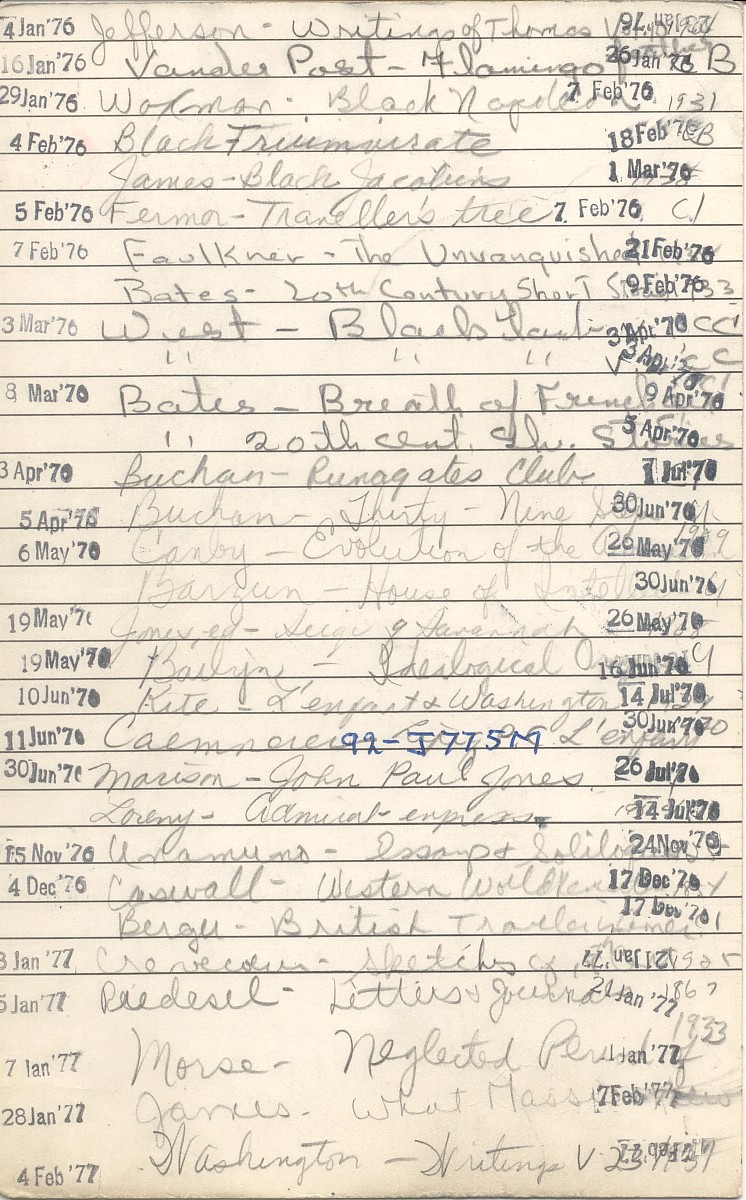 4 Jan'76 Jefferson - Writings of Thomas V
16 Jan'76 Vander Post - Flamingo feather 26 Jan'76 B
29 Jan'76 Waxman - Black Napoleon 7 Feb'76 1931
4 Feb'76 Black Triumvirate 18 Feb'76
James - Black Jacobins 1 Mar'76
5 Feb'76 Fermor - Traveller's tree 7 Feb'76 C.1
7 Feb'76 Faulkner - The Unvanquished 21 Feb'76
Bates - 20th Century Short 9 Feb'76 33
3 Mar'76 West - Black 3 Apr'76 CC
" " " 3 Apr C
8 Mar'76 Bates - Breath of French 9 Apr'76
" 20th cent. Sh. Stories 5 Apr'76
3 Apr'76 Buchan - Runagates Club 1 Jul'76
5 Apr'76 Buchan - Thirty - Nine 30 Jun'76
6 May'76 Canby - Evolution of the 26 May'76
Barzun - House of Intellect 30 Jun'76
19 May'76 Jones, ed - Seige of Savannah 26 May'76
19 May'76 Bailyn - Ideological 16 Jun'76
10 Jun'76 Kite - L'enfant & Washington 14 Jul'76
11 Jun'76 92-J775M L'enfant 30 Jun'76
30 Jun'76 Morison - John Paul Jones 26 Jul'76
Lorenz - Admiral - empress 14 Jul'76
15 Nov'76 Unamuno - Essays & Soliloquies 24 Nov'76
4 Dec'76 Coswall - Western World 17 Dec'76
Berger - British Traveler 17 Dec'76
3 Jan'77 Crevecoeur - Sketches of 21 Jan'77 1925
5 Jan'77 Riedesel - Letters & Journals 21 Jan'77 1867
1933
7 Jan'77 Morse - Neglected Period of Jan'77
28 Jan'77 James - What Maisie Knew 7 Feb'77
4 Feb'77 Washington - Writings V. 23